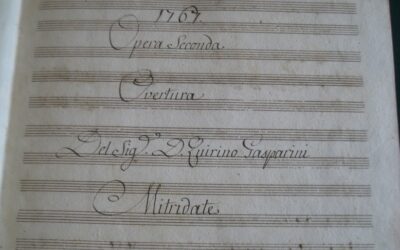 1767.
Opera Seconda
Overtura
Del Sig.º D. Quirino Gasparini
Mitridate